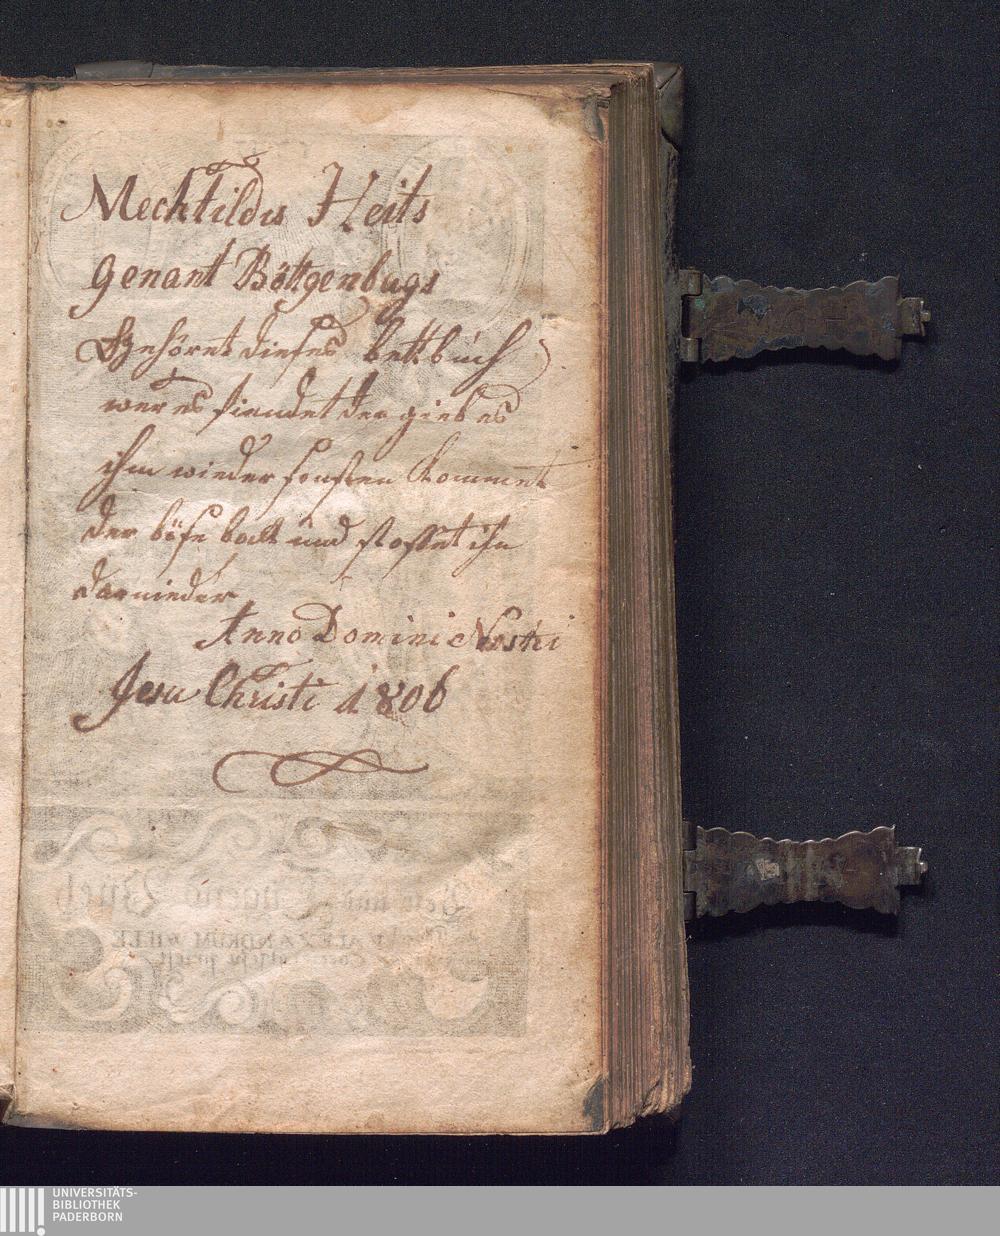 Mechtildis Heits
genant Böttgenbugs
Gehöret dieses bettbuch
wer es fiendet der gieb es
ihm wieder sonsten kommet
der böse balt und stosset ihn
darnieder
Anno Domini Nostri
Jesu Christi 1806
UNIVERSITÄTS-
BIBLIOTHEK
PADERBORN